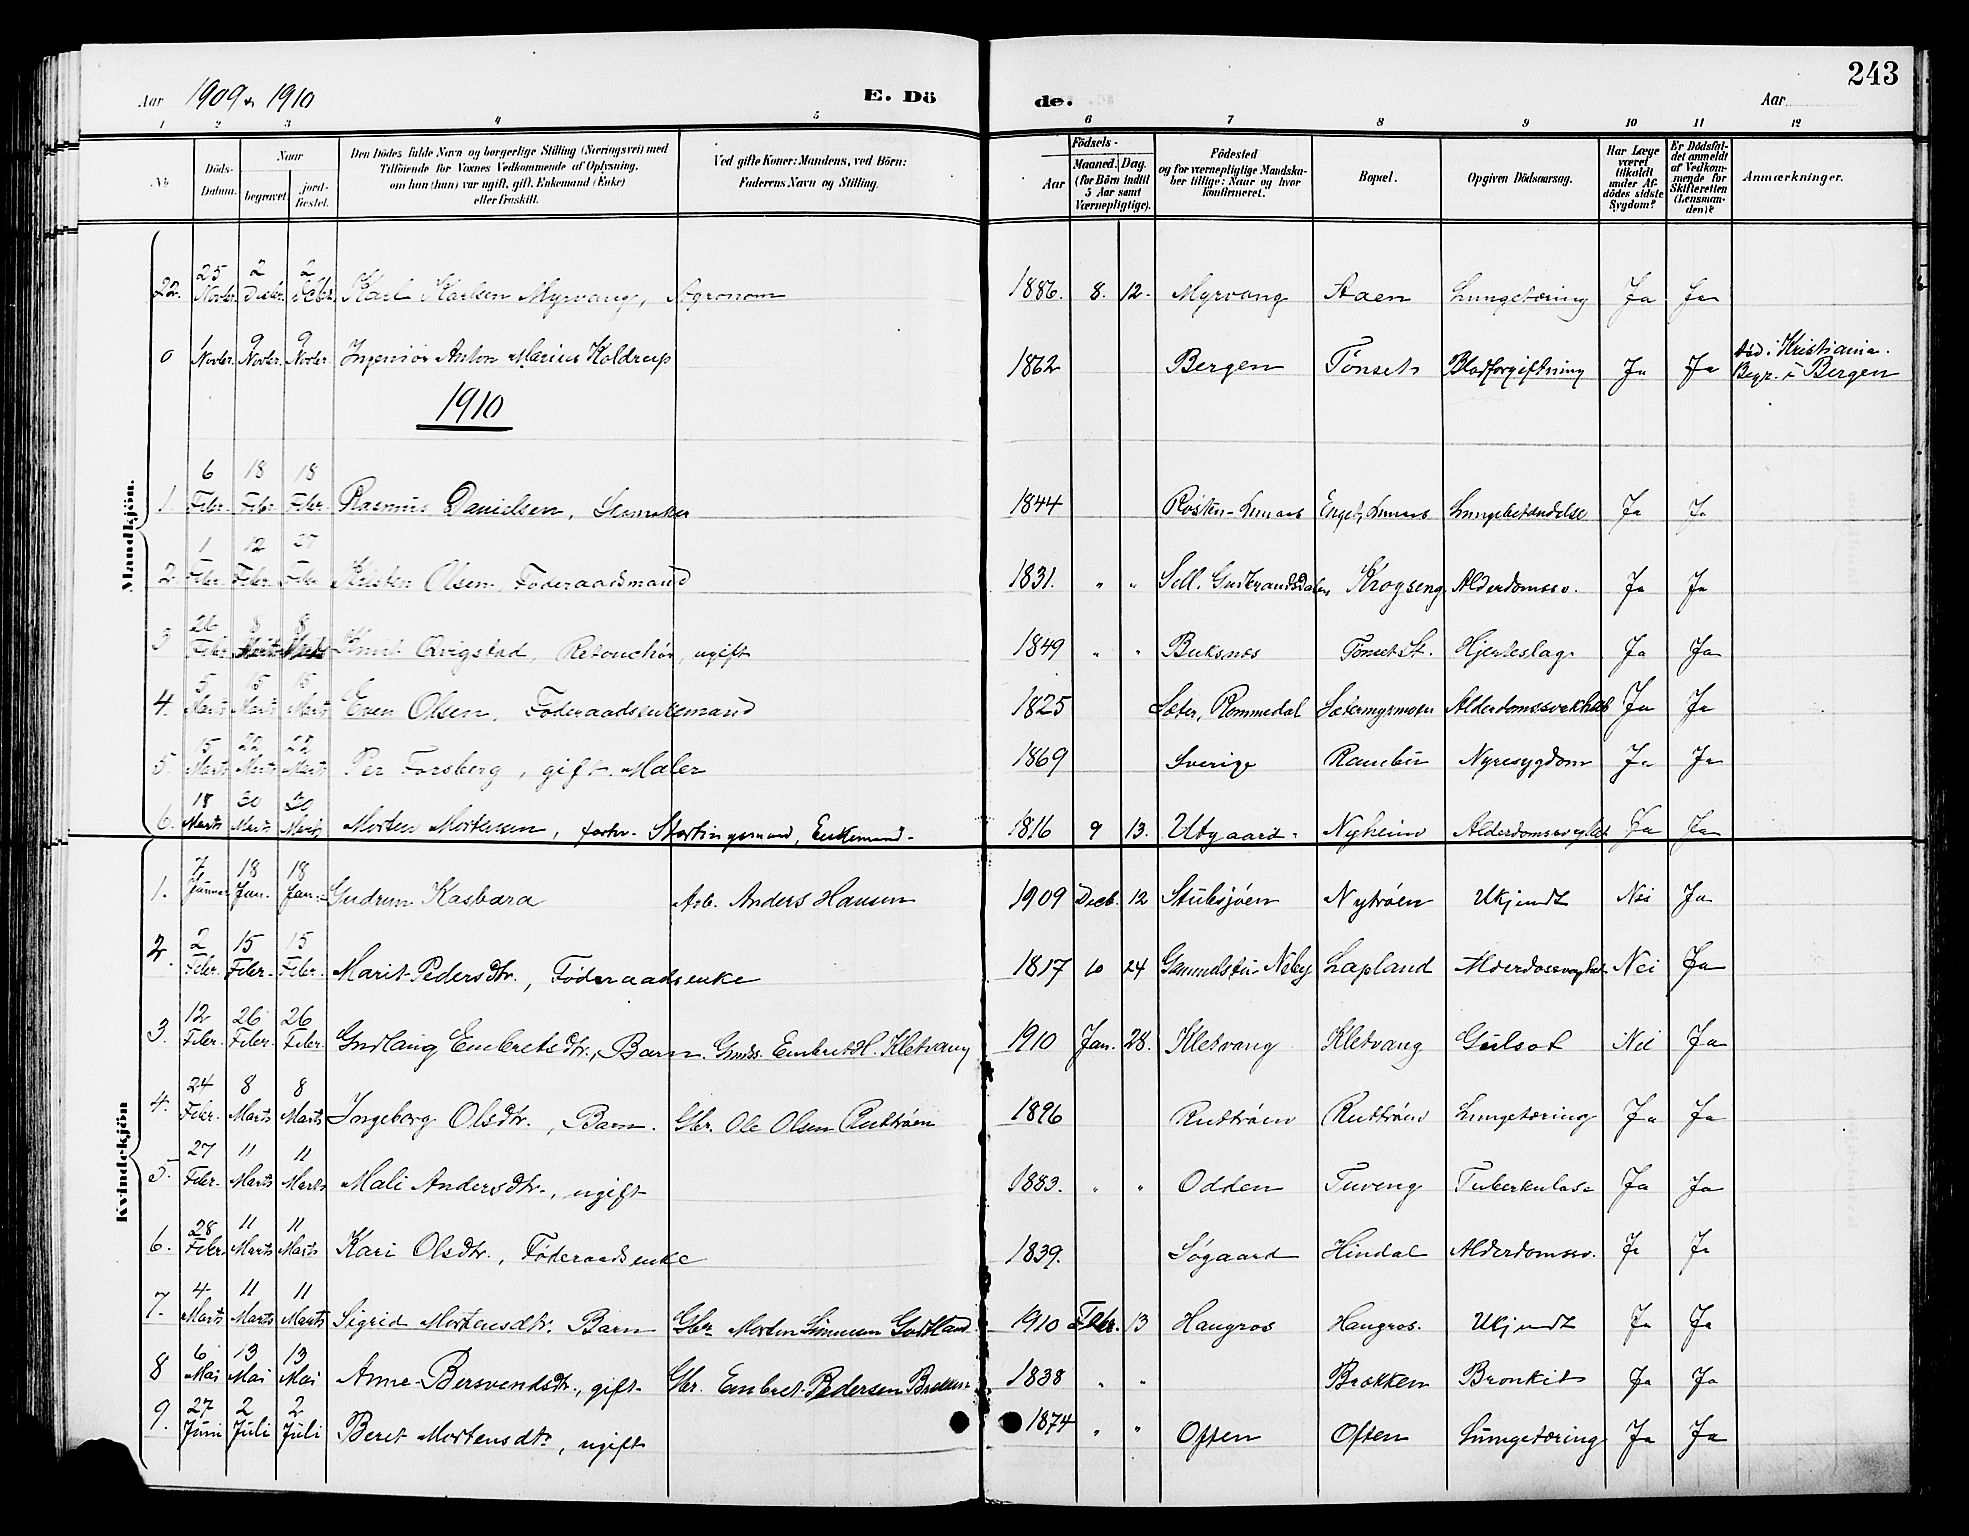 243
Aar 1909 & 1910 E. Dö de. Aar
1 2 3 4 5 6 7 8 9 10 11 12
No Döds-Datum. Naar begravet. jordfæstet. Den Dödes fulde Navn og borgerlige Stilling (Næringsvei) med Tilföiende for Voxnes Vedkommende af Oplysning, om han (hun) var ugift, gift, Enkemand (Enke) eller fraskilt. Ved gifte Koner: Mandens, ved Börn: Faderens Navn og Stilling. Födsels- Aar Maaned. Dag. (for Börn indtil 5 Aar samt Værnepligtige). Födested og for værnepligtige Mandskaber tillige: Naar og hvor konfirmeret. Bopæl. Opgiven Dödsaarsag. Har Læge været tilkaldt under Afdödes sidste Sygdom? Er Dödsfaldet anmeldt af Vedkommende for Skifteretten (Lensmanden)? Anmærkninger.
Mandkjön.
22. 25 Novbr. 2 Decbr. 2 Febr. Karl Karlsen Myrvang, Agronom 1886. 8. 12. Myrvang Aaen Lungetæring Ja Ja
0 1 Novbr. 9 Novbr. 9 Novbr. Ingeniör Anton Marius Koldrup 1862 Bergen Tönset Blodforgiftning Ja Ja död i Kristiania. Begr. i Bergen
1910
1 6 Febr. 18 Febr. 18 Febr. Rasmus Danielsen, Skomaker 1844 Røsten-Lunaas Enget, Lunaas Lungebetændelse Ja Ja
2 1 Febr. 12 Febr. 27 Febr. Kristen Olsen, Föderaadsmand 1831. " " Sell. Gudbrandsdalen Krogseng Alderdomssv. Ja Ja
3 26 Febr. 8 Marts 8 Marts Knut Qvigstad, Retouchör, ugift 1849 " " Buksnæs Tönset St. Hjerteslag Ja Ja
4. 5 Marts 15 Marts 15 Marts Even Olsen, Föderaadsenkemand 1825 Sæter, Rommedal Sætermyrmoen Alderdomssvakhed Ja Ja
5. 15 Marts 22 Marts 22 Marts Per Forsberg, gift. Maler 1869 Sverige Rambu Nyresygdom Ja Ja
6. 18 Marts 30 Marts 30 Marts Morten Mortensen, forhv. Stortingsmand, Enkemand. 1816 9 13. Utgaard. Nyheim Alderdomssvaghet Ja Ja
Kvindekjön
1. 7 Januar 18 Jan. 18 Jan. Gudrun Kasbara Arb. Anders Hansen 1909 Decb. 12 Stubsjöen Nytröen Ukjendt Nei Ja
2. 2 Febr. 15 Febr. 15 Febr. Marit Pedersdtr., Föderaadsenke 1817 10 24 Gammelstu-Neby Lapland Alderdomssvaghet Nei Ja
3. 12 Febr. 26 Febr. 26 Febr. Gudlaug Embretsdtr., Barn. Gmds. Embret H. Kletvang 1910 Jan. 28. Kletvang Kletvang Gulsot Nei Ja
4. 24 Febr. 8 Marts 8 Marts Ingeborg Olsdtr., Barn. Gbr. Ole Olsen Rudtröen 1896 Rudtröen Rudtröen Lungetæring Ja Ja
5. 27 Febr. 11 Marts 11 Marts Mali Andersdtr., ugift 1883. " " Odden Tuveng Tuberkulose Ja Ja
6. 28 Febr. 11 Marts 11 Marts Kari Olsdtr., Föderaadsenke 1839. Søgaard Hindal Alderdomssv. Ja Ja
7. 4 Marts 11 Marts 11 Marts Sigrid Mortensdtr. Barn Gbr. Morten Simensen 1910 Febr. 13 Haugros Haugros. Ukjendt Ja Ja
8 6 Mai 13 Mai 13 Mai Anne Bersvendsdtr., gift. Gbr. Embret Pedersen Brækken 1838 " " Brækken Bronkit Ja Ja
9. 27 Juni 2 Juli 2 Juli Beret Mortensdtr., ugift 1874 " " Often Often Lungetæring Ja Ja